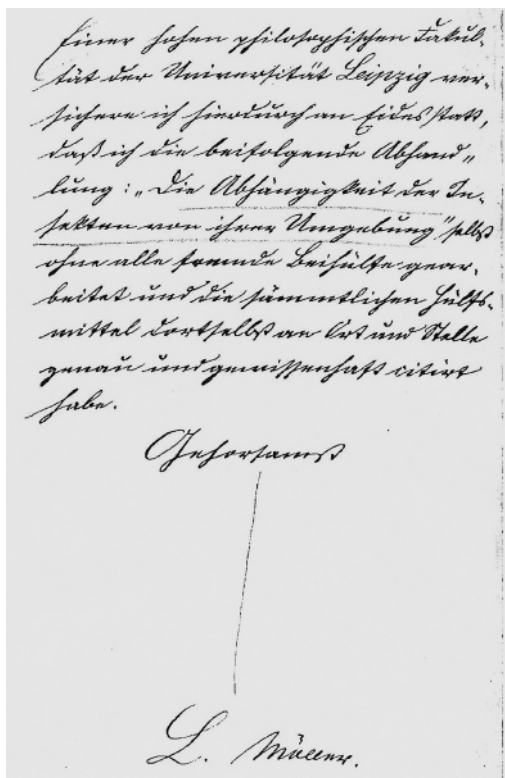 Einer hohen philosophischen Fakul-
tät der Universität Leipzig ver-
sichere ich hierdurch an Eidesstatt,
daß ich die beifolgende Abhand-
lung: „Die Abhängigkeit der In-
sekten von ihrer Umgebung" selbst
ohne alle fremde Beihülfe gear-
beitet und die sämmtlichen Hülfs-
mittel dortselbst an Ort und Stelle
genau und gewissenhaft citirt
habe.
Gehorsamst
L. Möller.